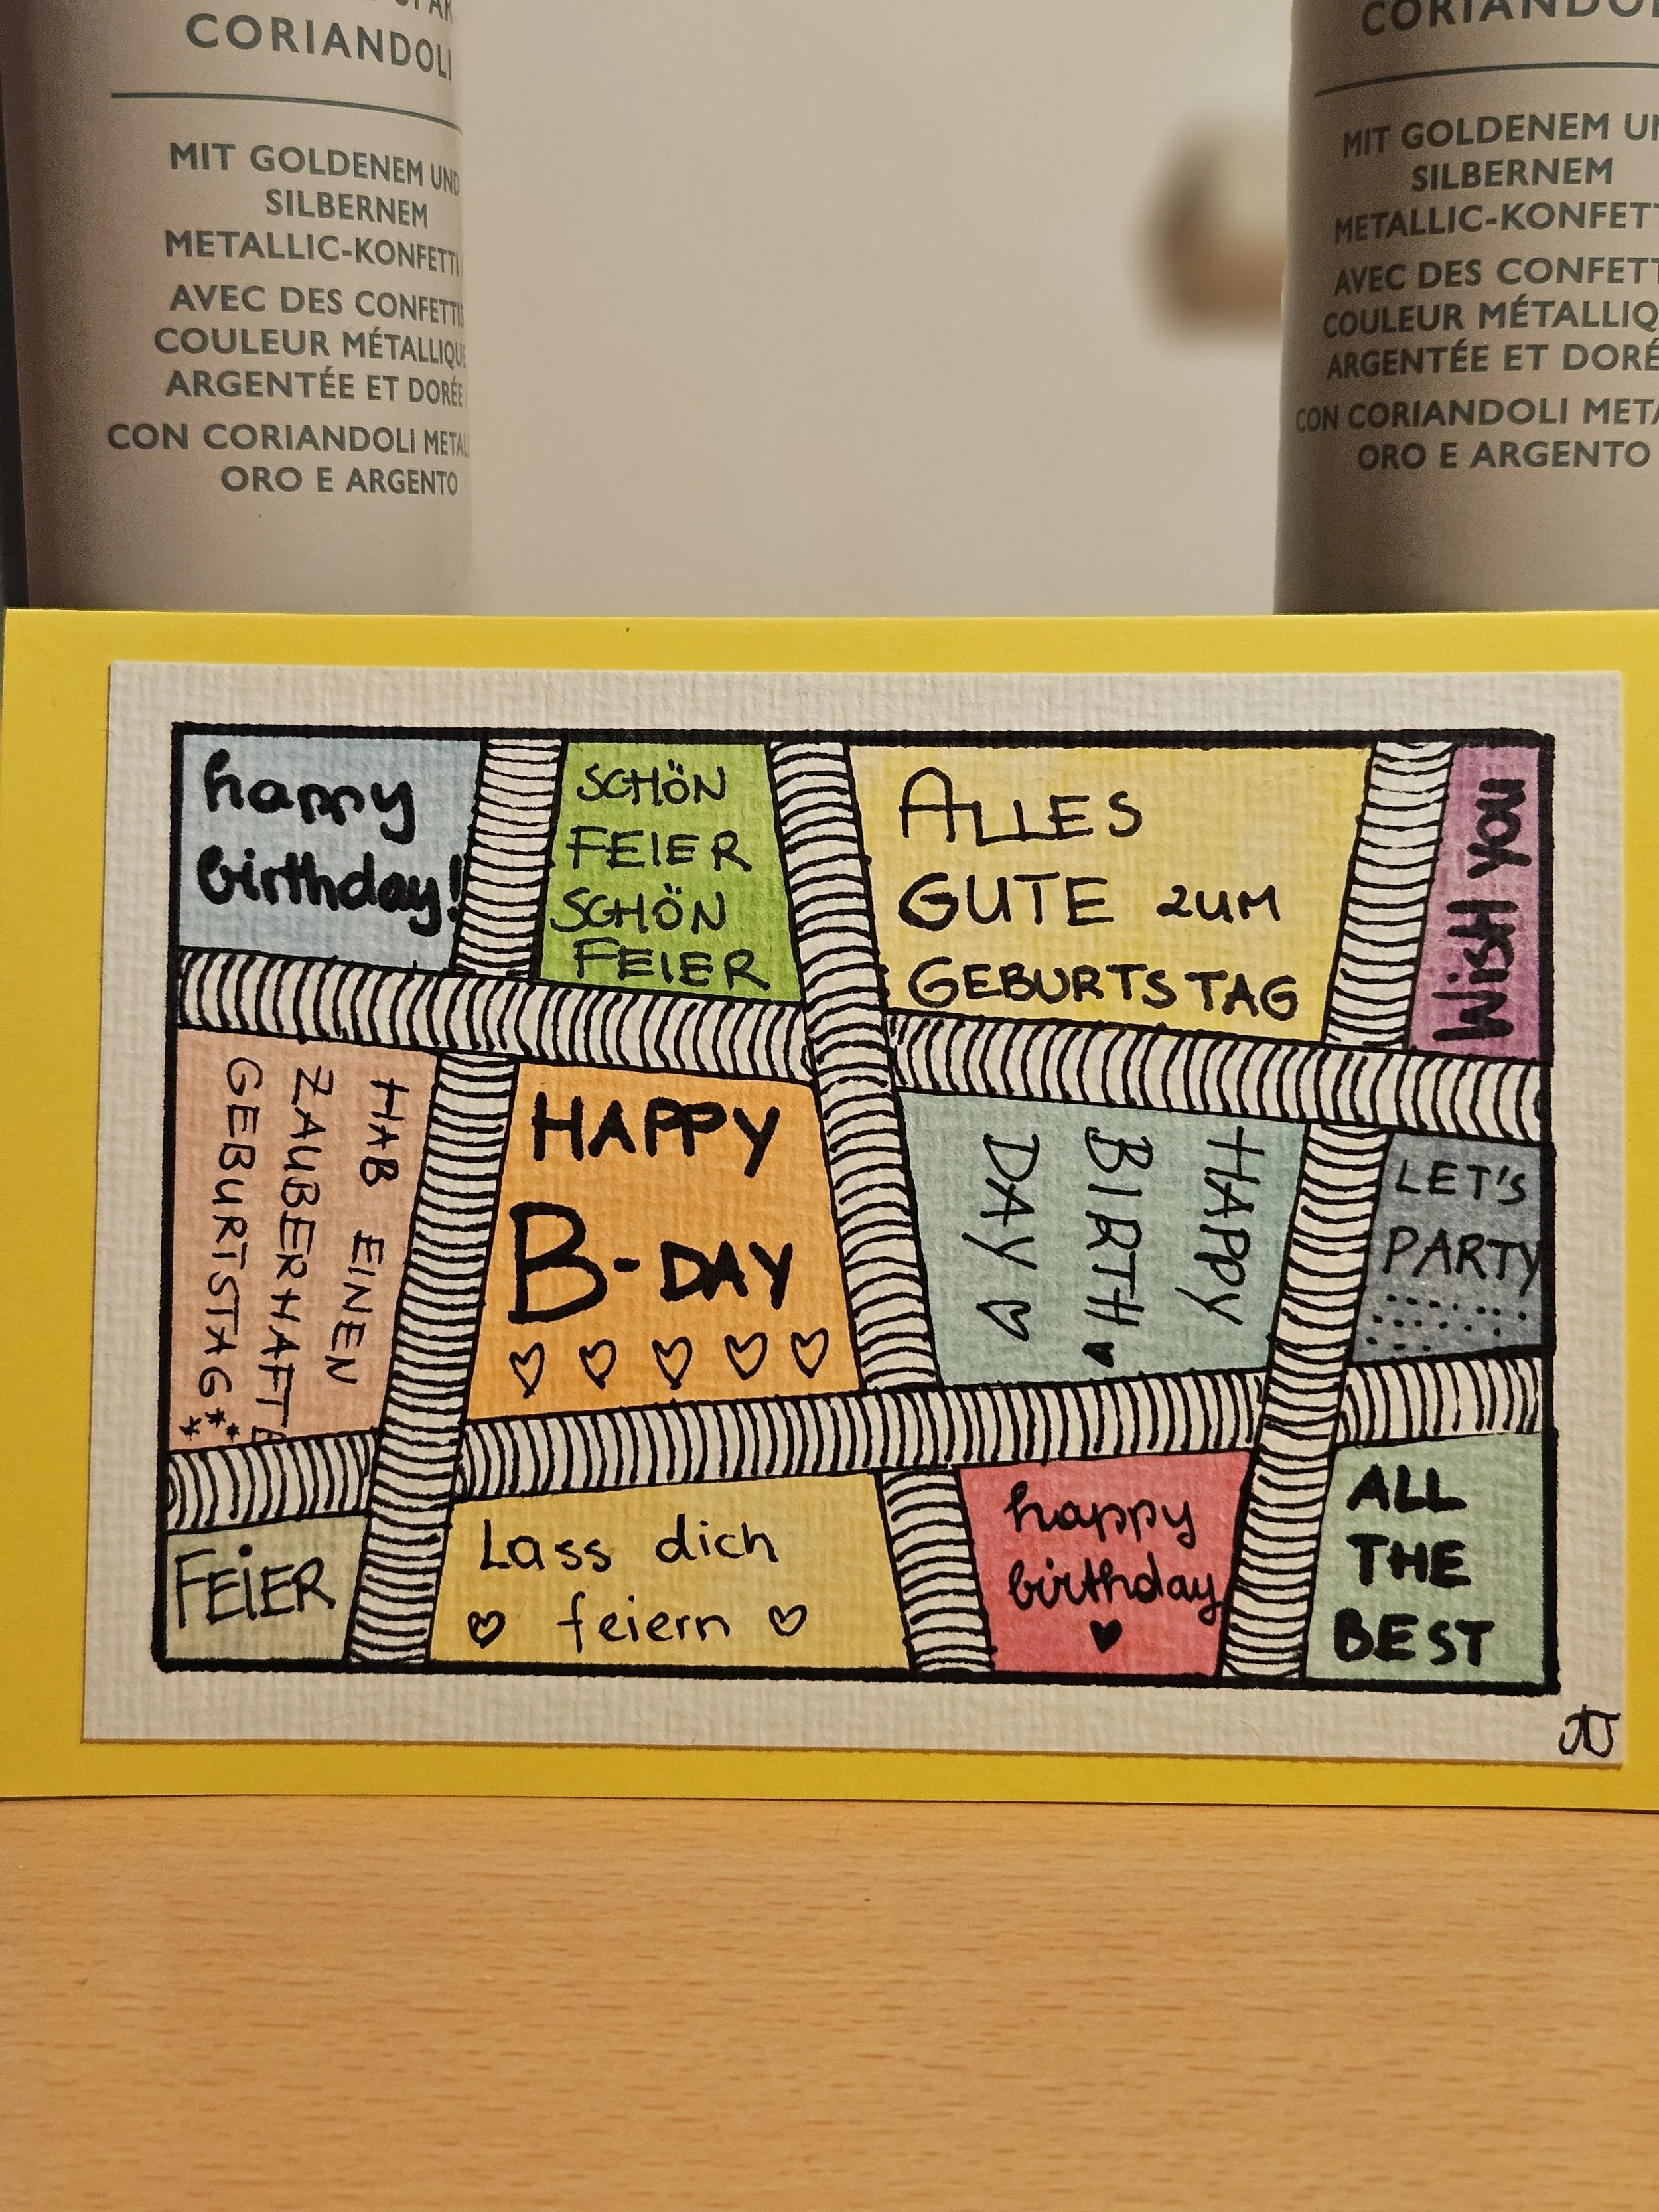 CORIANDOLI
MIT GOLDENEM UND
SILBERNEM
METALLIC-KONFETTI
AVEC DES CONFETTIS
COULEUR MÉTALLIQUE
ARGENTÉE ET DORÉE
CON CORIANDOLI METAL
ORO E ARGENTO
CORIANDOL
MIT GOLDENEM UN
SILBERNEM
METALLIC-KONFETT
AVEC DES CONFETT
COULEUR MÉTALLIQ
ARGENTÉE ET DORÉ
CON CORIANDOLI META
ORO E ARGENTO
happy
birthday!
SCHÖN
FEIER
SCHÖN
FEIER
ALLES
GUTE ZUM
GEBURTSTAG
Wish you
HAB EINEN
ZAUBERHAFTE
GEBURTSTAG
HAPPY
B-DAY
HAPPY
BIRTH
DAY
LET'S
PARTY
FEIER
Lass dich
feiern
happy
birthday
ALL
THE
BEST